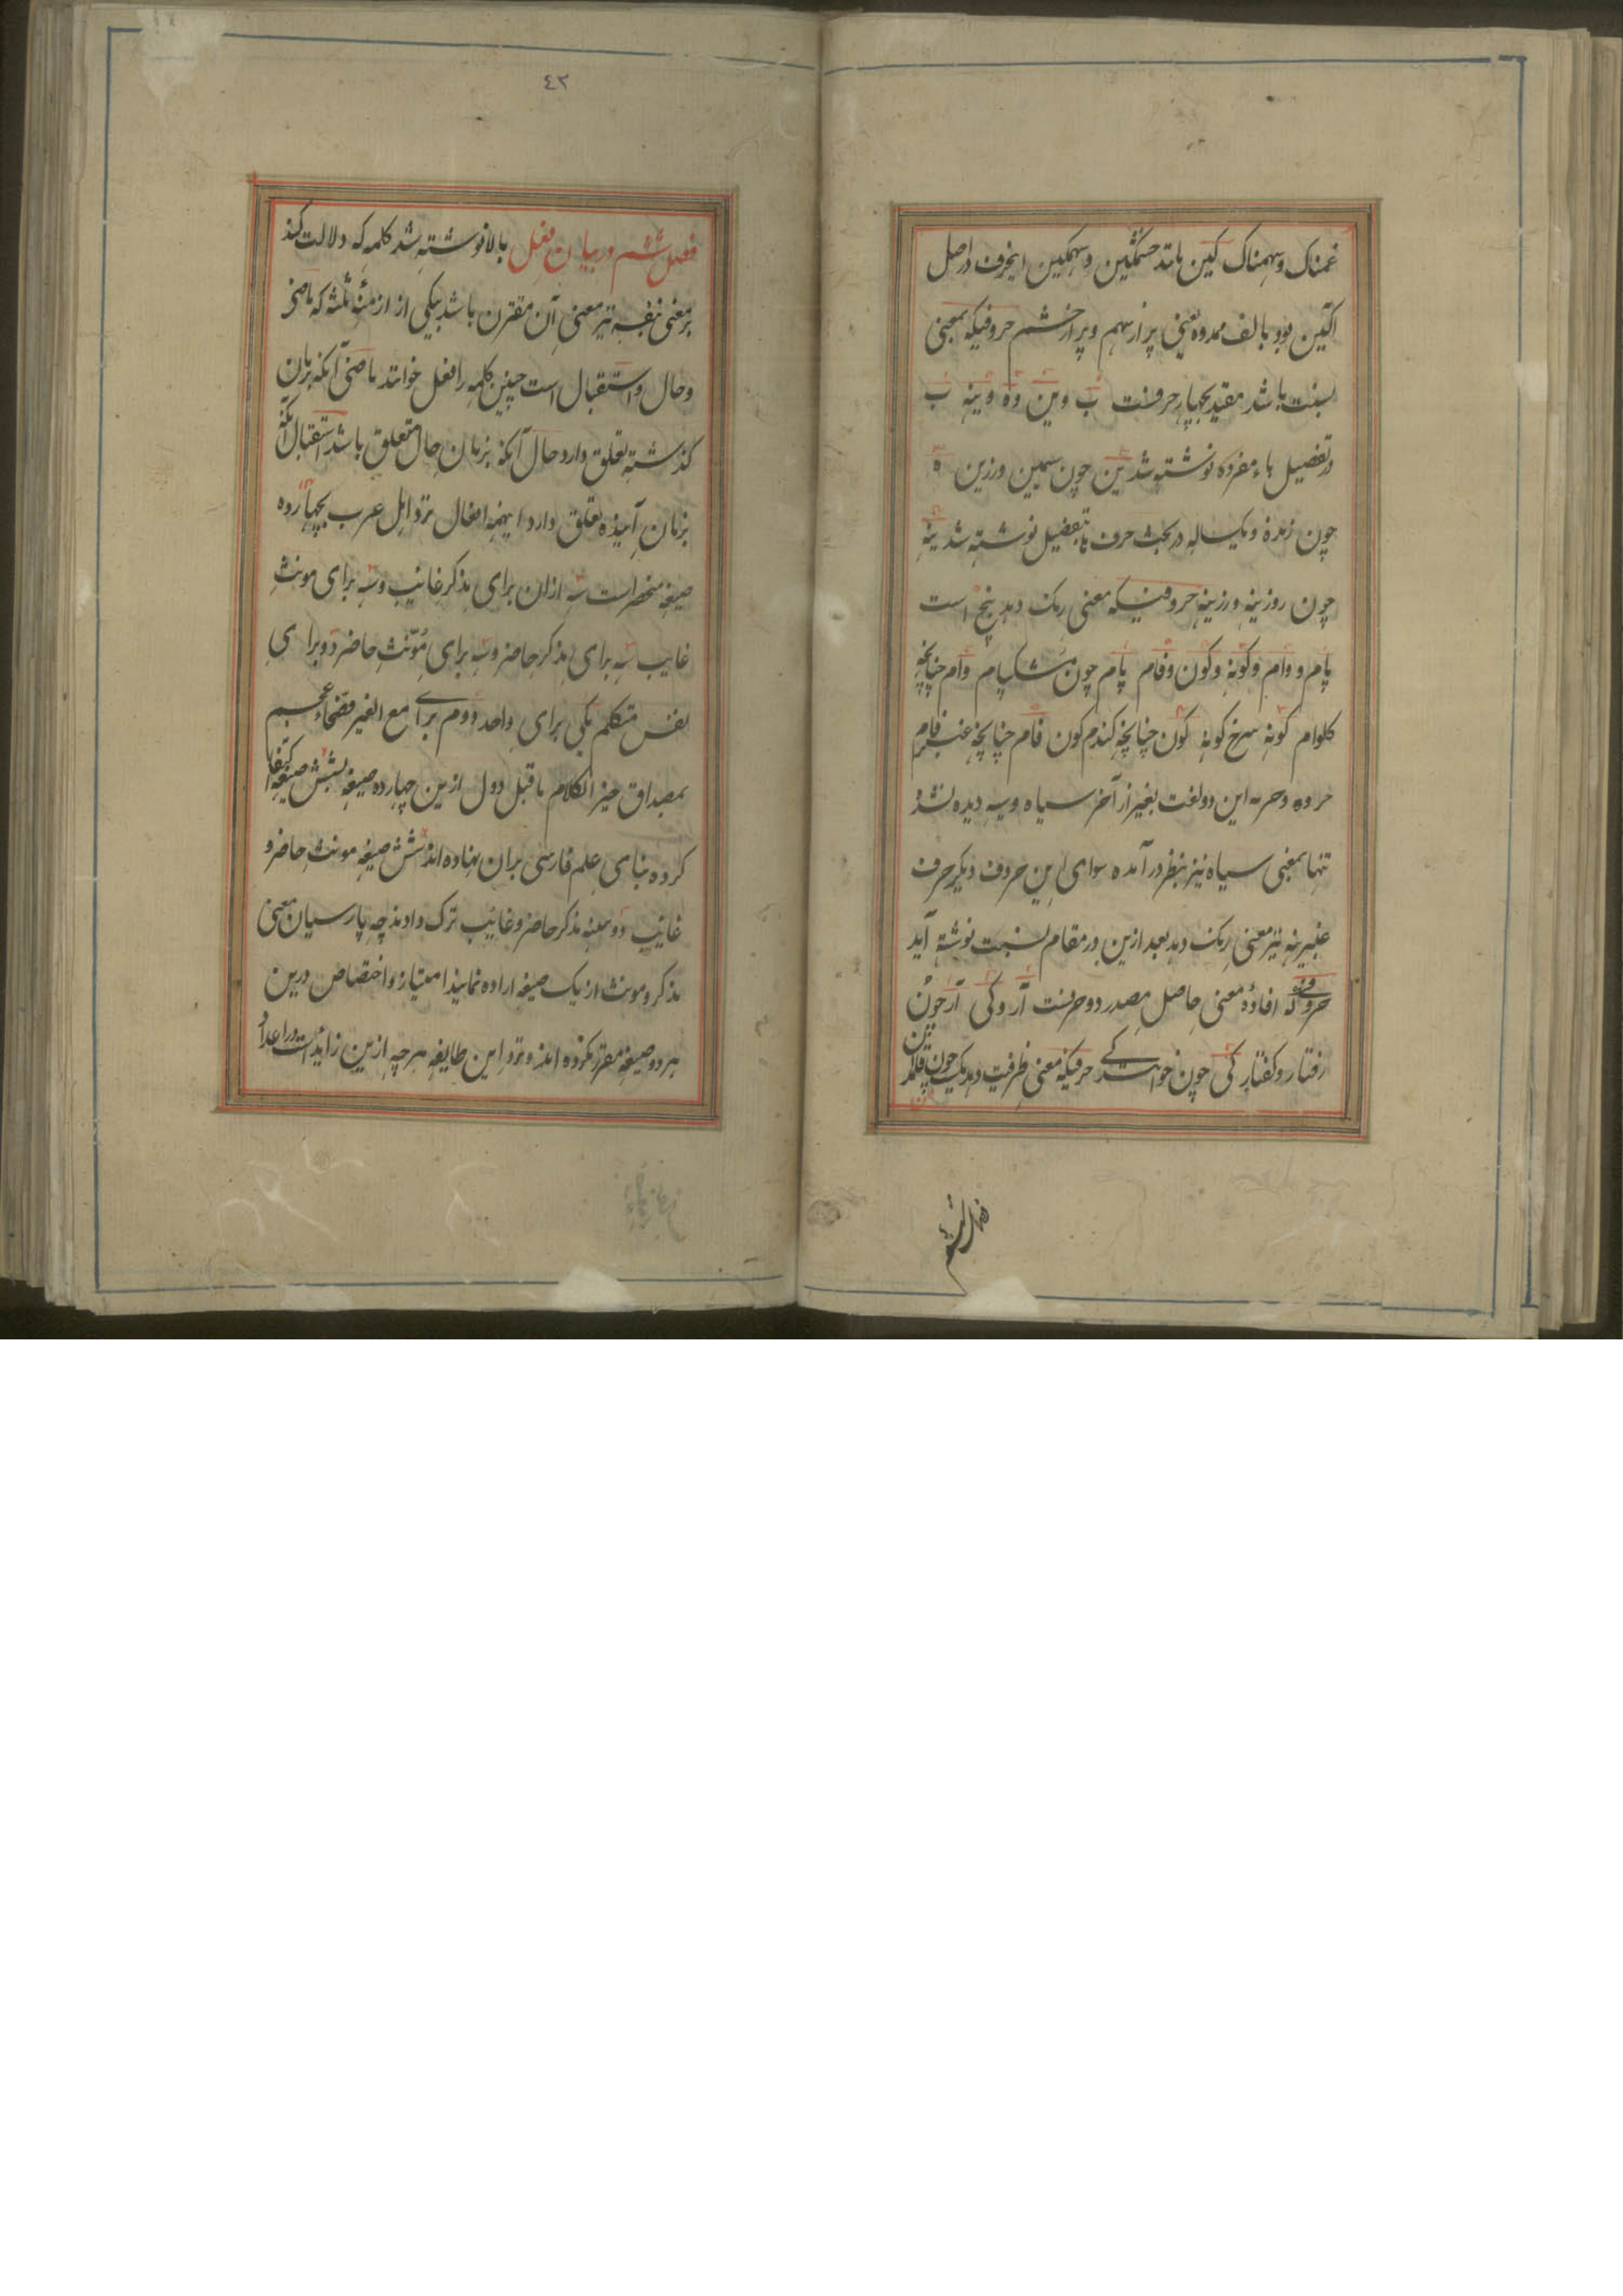 غمناک و سهمناک کین مانند خشمگین و سهمگین اینحرف در اصل
آکین بود بالف ممدوده یعنی پر از سهم و پر از خشم حروفیکه بمعنی
نسبت باشد مقید بچهار حرفست ب وین وه وینه ب
در تفصیل باء مفرده نوشته شد ین چون سیمین و زرین ه
چون زنده و یکساله در بحث حرف ها بتفصیل نوشته شد ینه
چون روزینه و زرینه حروفیکه معنی رنک دهد پنج است
پام و وام و کونه و کون و فام پام چون مشکپام وام چنانچه
کلوام کونه سرخ کونه کون چنانچه کندم کون فام چنانچه عنبرفام
این دو لغت بغیر از آخر سیاه و سیه دیده نشد
تنها بمعنی سیاه نیز بنظر درآمده سوای این حروف دیکر حرف
عنبرینه نیز معنی رنک دهد بعد ازین در مقام نسبت نوشته آید
حروفیکه افادهٔ معنی حاصل مصدر دو حرفست آر و کی آر چون
رفتار و کفتار کی چون خوانندکی حرفیکه معنی ظرفیت دهد یک چون قلمدان
فصل ششم
٤٢
فصل ششم در بیان فعل بالا نوشته شد کلمه که دلالت کند
بر معنی بنفسه نیز معنی آن مقترن باشد بیکی از ازمنهٔ ثلثه که ماضی
و حال و استقبال است چنین کلمه را فعل خوانند ماضی آنکه بزمان
کذشته تعلق دارد حال آنکه بزمان حال متعلق باشد استقبال آنکه
بزمان آینده تعلق دارد اینهمه افعال نزد اهل عرب بچهارده
صیغه منحصر است سه ازان برای مذکر غایب و سه برای مونث
غایب سه برای مذکر حاضر و سه برای مؤنث حاضر دو برای
نفس متکلم یکی برای واحد دوم برای مع الغیر فصحاء عجم
بمصداق خیر الکلام ما قل و دل ازین چهارده صیغه بشش صیغه اکتفا
کرده بنای علم فارسی بران نهاده اند شش صیغه مونث حاضر و
غایب دو تثنیه مذکر حاضر و غایب ترک دادند چه پارسیان معنی
مذکر و مونث از یک صیغه اراده نمایند امتیاز و اختصاص درین
هر دو صیغه مقرر نکرده اند و نزد این طایفه هر چه ازین زاید است در اعداد